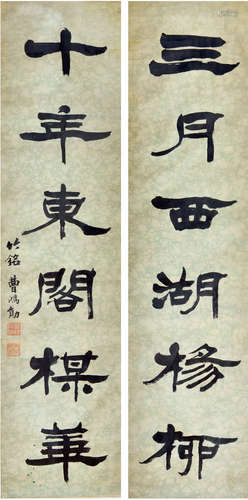 三月西湖楊柳
十年東閣楳華
竹銘曹鴻勛